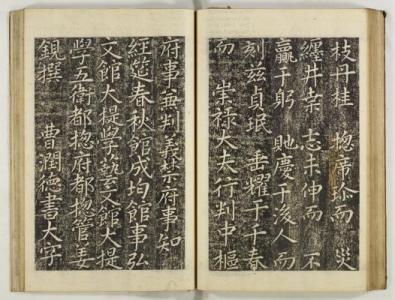 枝丹桂 揔而 災
纏井 志未伸而 不
贏于躬 貤慶于後人而
刻兹貞珉 垂耀于千春
而 崇祿大夫行判中樞
府事兼判義禁府事知
經筵春秋館成均館事弘
文館大提學藝文館大提
學五衛都揔府都揔管姜
鋧撰 曹潤德書大字